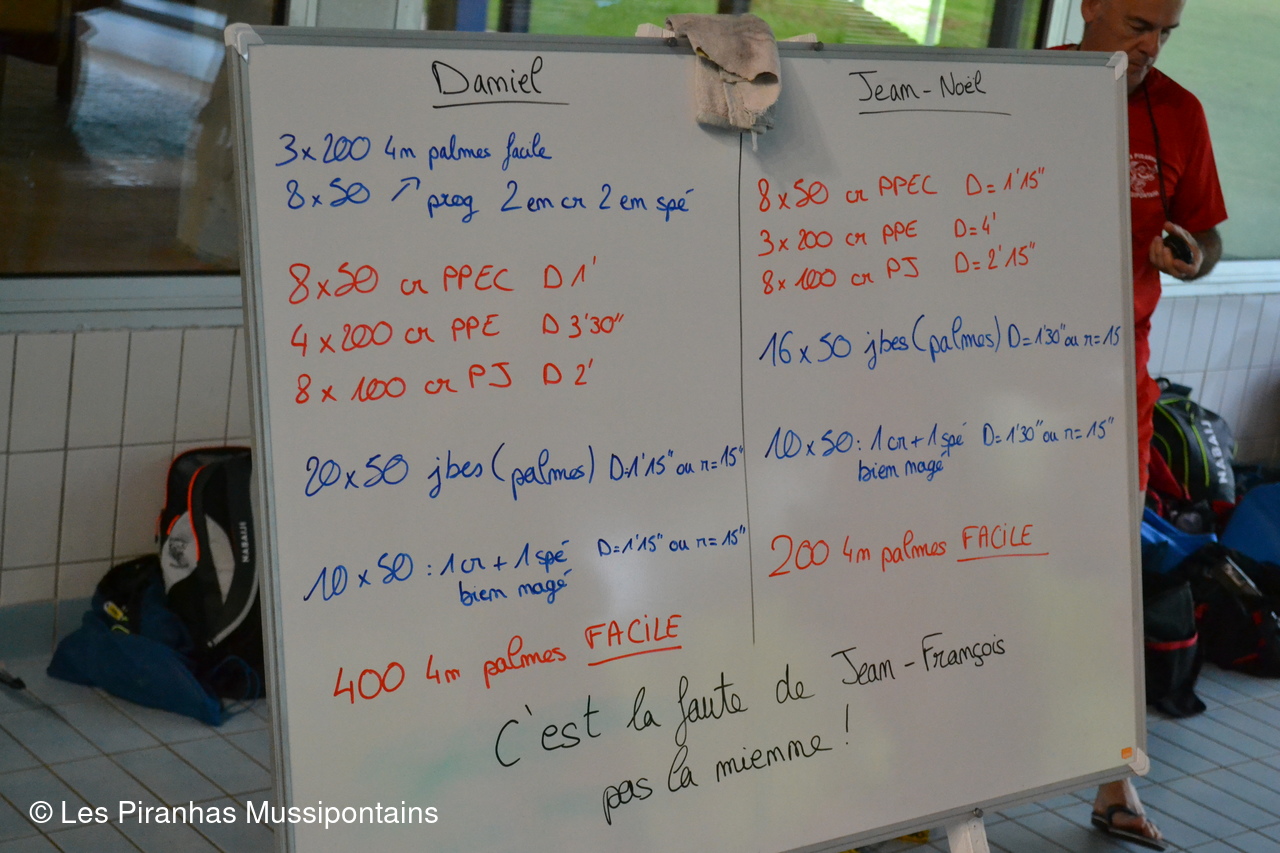 Daniel
3x200 4m palmes facile
8x50 ↗ prog 2 em cr 2 em spé
8x50 cr PPEC D 1'
4x200 cr PPE D 3'30"
8x100 cr PJ D 2'
20x50 jbes (palmes) D=1'15" ou r=15"
10x50 : 1cr + 1 spé D=1'15" ou r=15"
bien magé
400 4m palmes FACILE
Jean-Noël
8x50 cr PPEC D=1'15"
3x200 cr PPE D=4'
8x100 cr PJ D=2'15"
16x50 jbes (palmes) D=1'30" ou r=15
10x50 : 1cr + 1 spé D=1'30" ou r=15"
bien magé
200 4m palmes FACILE
C'est la faute de Jean-François
pas la mienne !
NABAIJI
NABAIJI
© Les Piranhas Mussipontains